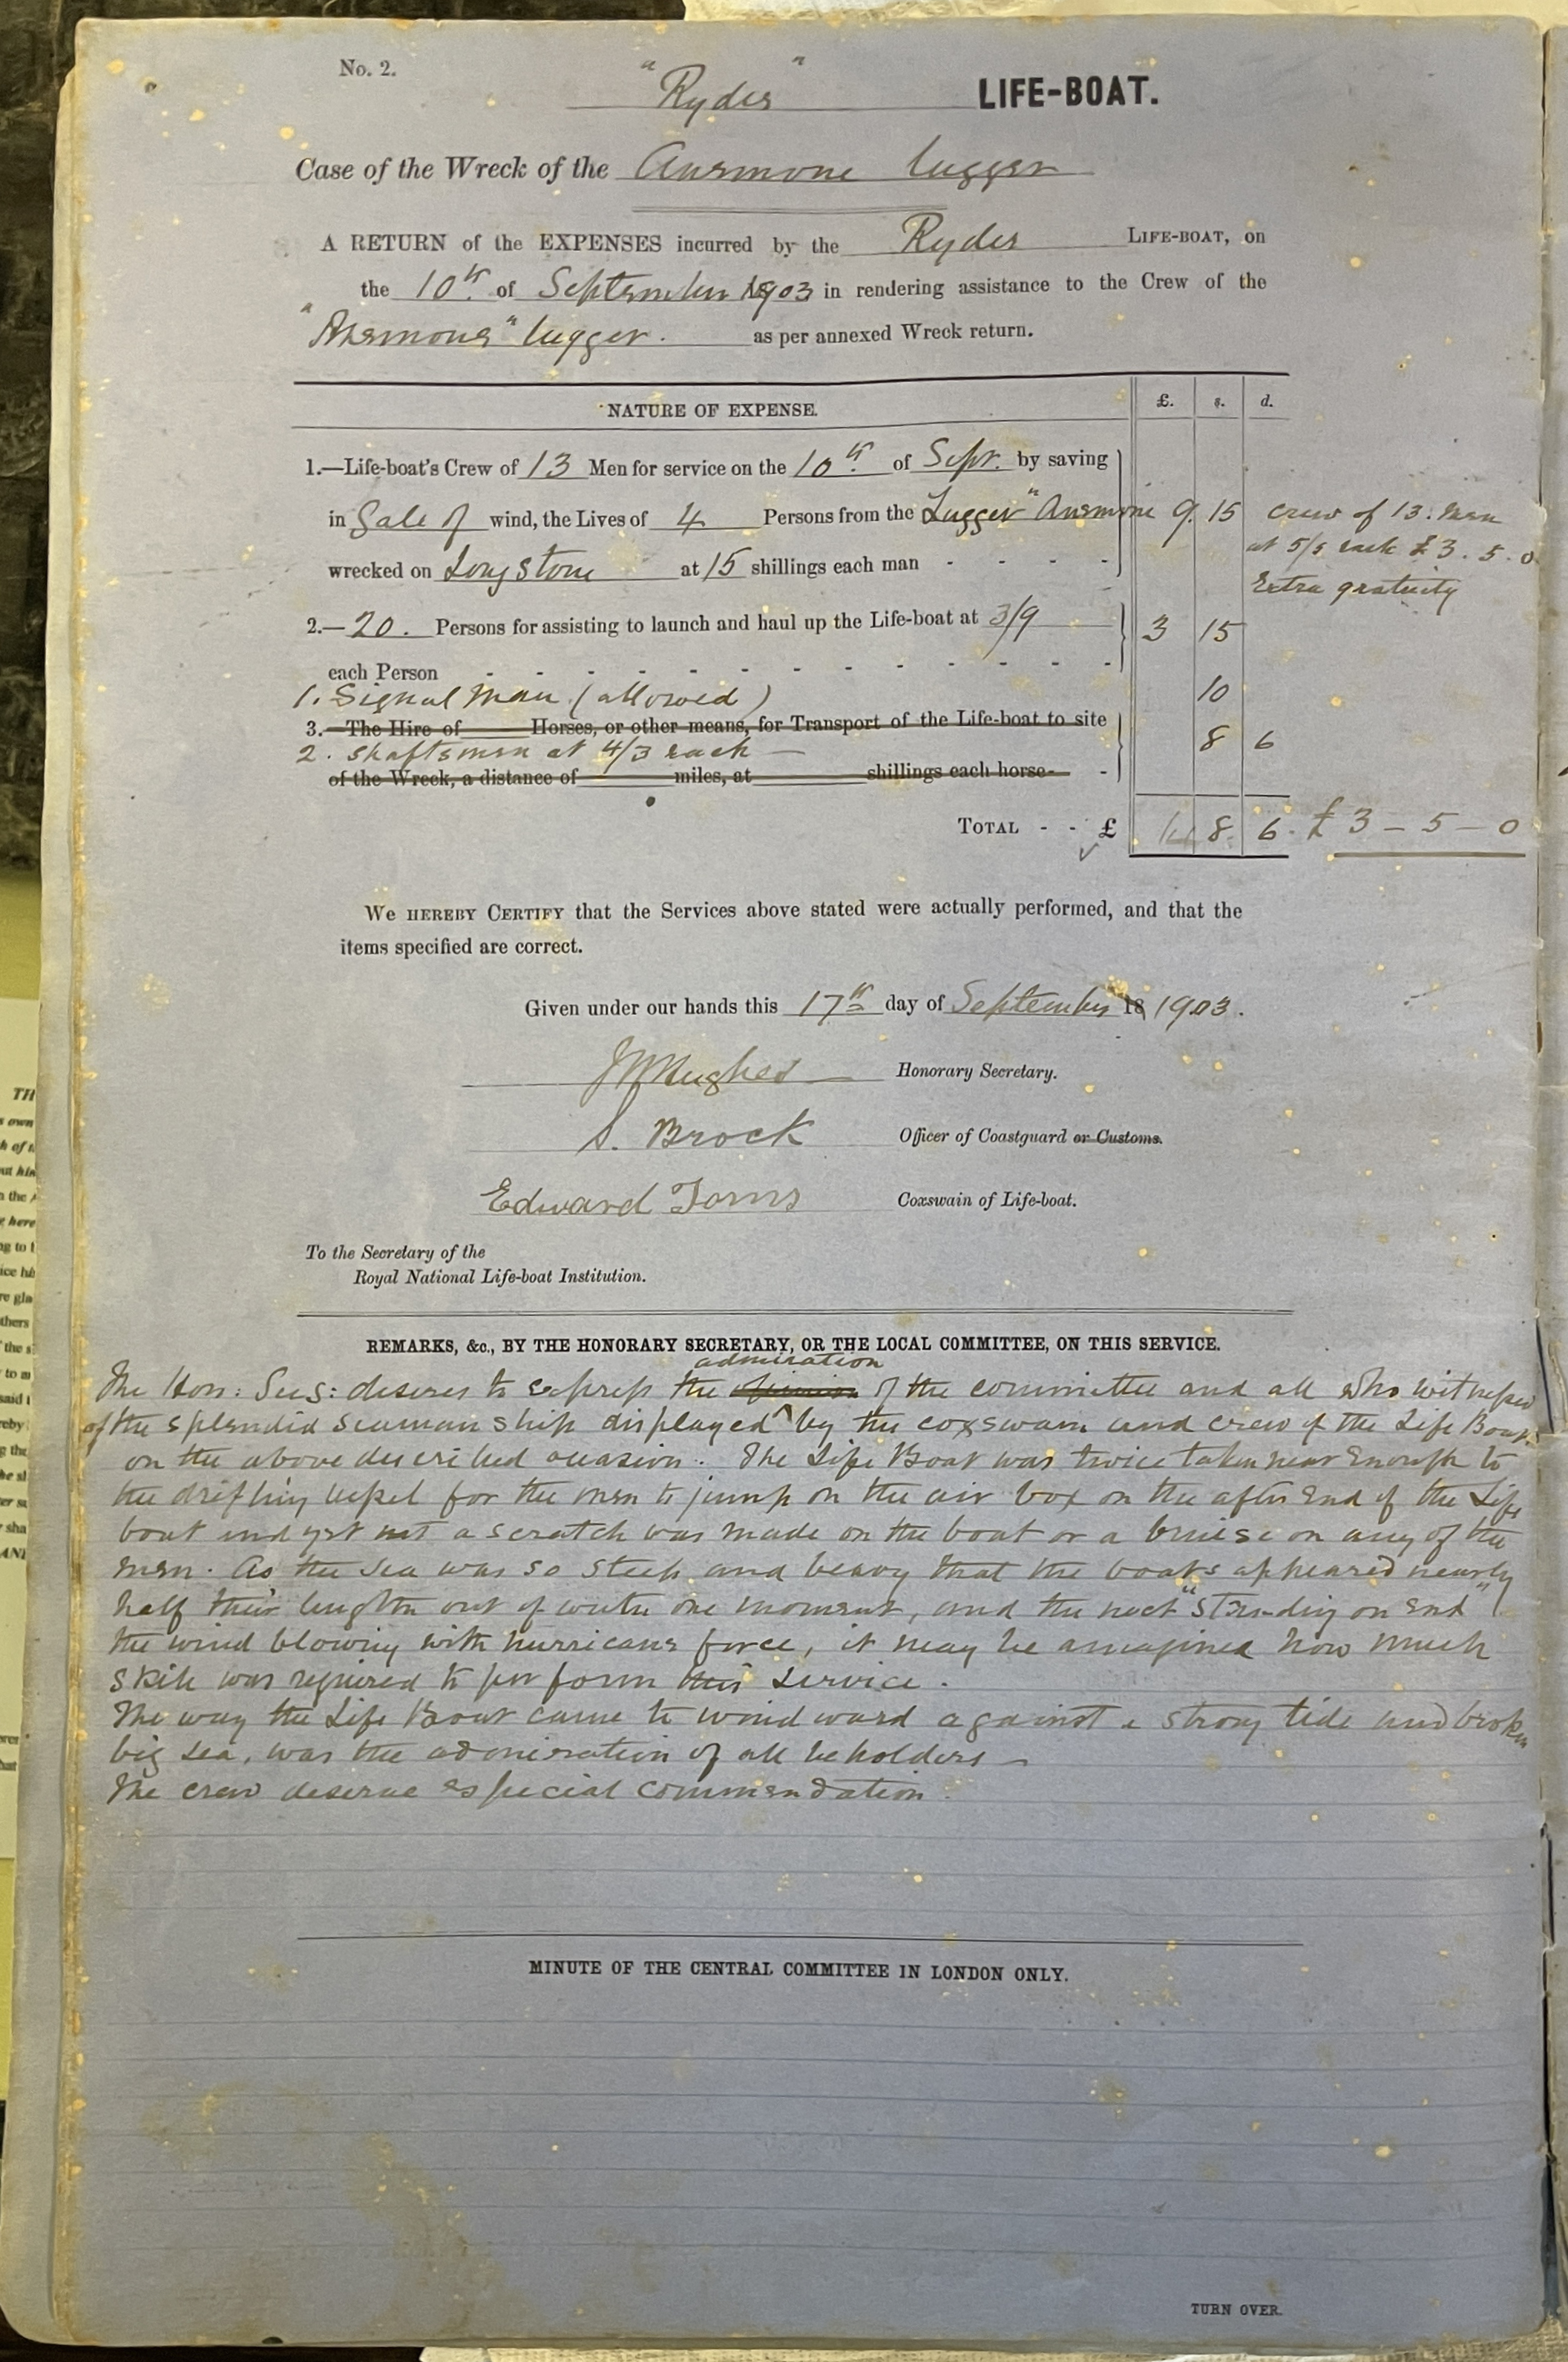 No. 2.
"Ryder" LIFE-BOAT.
Case of the Wreck of the Anemone lugger
A RETURN of the EXPENSES incurred by the Ryder LIFE-BOAT, on
the 10th of September 1903 in rendering assistance to the Crew of the
"Anemone" lugger. as per annexed Wreck return.
NATURE OF EXPENSE. £. s. d.
1.—Life-boat's Crew of 13 Men for service on the 10th of Sept. by saving
in Gale of wind, the Lives of 4 Persons from the Lugger "Anemone 9 15 crew of 13 men
at 5/s each £3. 5. 0
wrecked on Long Stone at 15 shillings each man - - - -
Extra gratuity
2.—20. Persons for assisting to launch and haul up the Life-boat at 3/9
3 15
each Person - - - - - - - - - - - - -
1. Signal Man (allowed) 10
3.—The Hire of Horses, or other means, for Transport of the Life-boat to site
2. shaftsmen at 4/3 each — 8 6
of the Wreck, a distance of miles, at shillings each horse- -
TOTAL - - £ 14 8. 6. £3-5-0
We HEREBY CERTIFY that the Services above stated were actually performed, and that the
items specified are correct.
Given under our hands this 17th day of September 18 1903.
Hughes Honorary Secretary.
S. Brock Officer of Coastguard or Customs.
Edward Toms Coxswain of Life-boat.
To the Secretary of the
Royal National Life-boat Institution.
REMARKS, &c., BY THE HONORARY SECRETARY, OR THE LOCAL COMMITTEE, ON THIS SERVICE.
admiration
The Hon: Secy: desires to express the opinion of the committee and all who witnessed
of the splendid seamanship displayed ^ by the coxswain and crew of the Life Boat
on the above described occasion. The Life Boat was twice taken near enough to
the drifting vessel for the men to jump on the air box on the after end of the Life
boat and yet not a scratch was made on the boat or a bruise on any of the
men. As the sea was so steep and heavy that the boats appeared nearly
half their length out of water one moment, and the next "standing on end"
the wind blowing with hurricane force, it may be imagined how much
skill was required to perform this service.
The way the Life Boat came to windward against a strong tide and broken
big sea, was the admiration of all beholders
The crew deserve especial commendation.
MINUTE OF THE CENTRAL COMMITTEE IN LONDON ONLY.
TURN OVER.